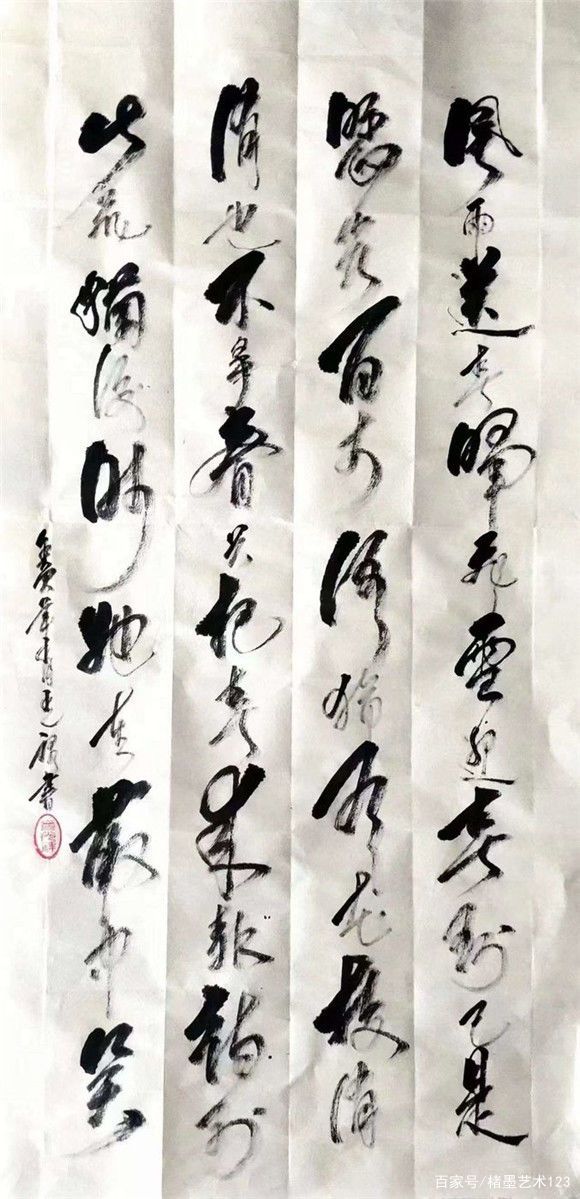 風雨送春歸飛雪迎春到已是
懸崖百丈冰猶有花枝俏
俏也不爭春只把春來報待到
山花爛漫時她在叢中笑
書
百家号/楮墨艺术123